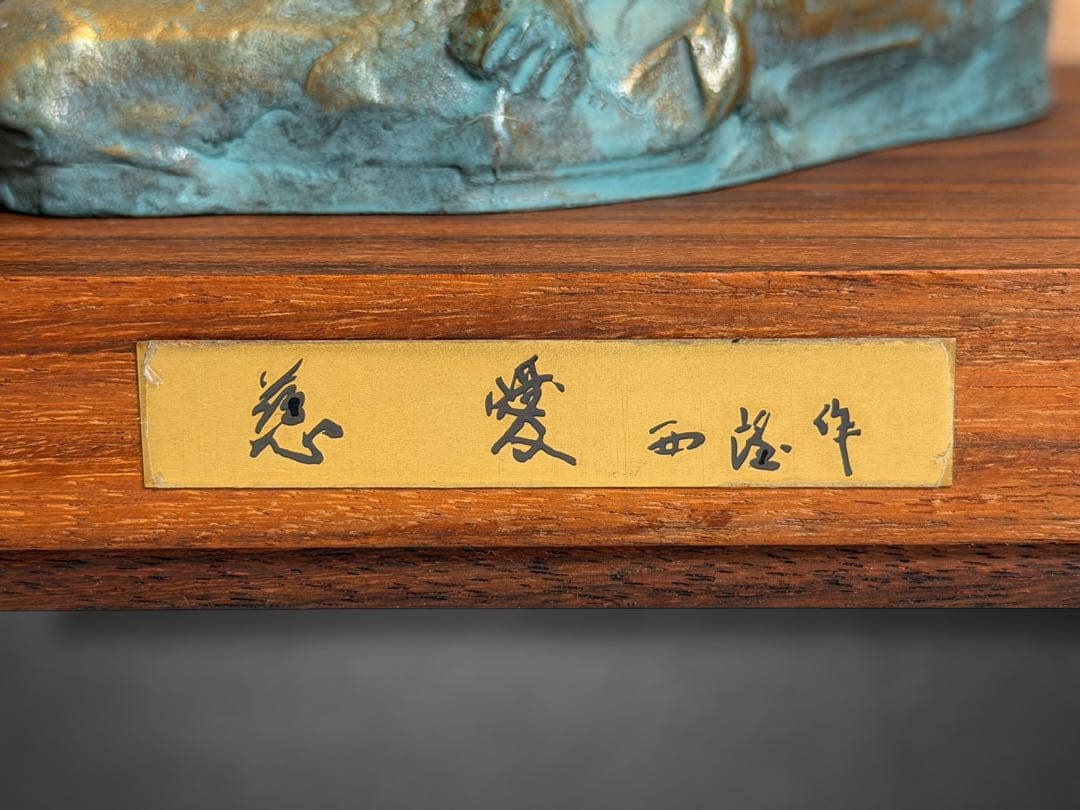 慈愛 西望作